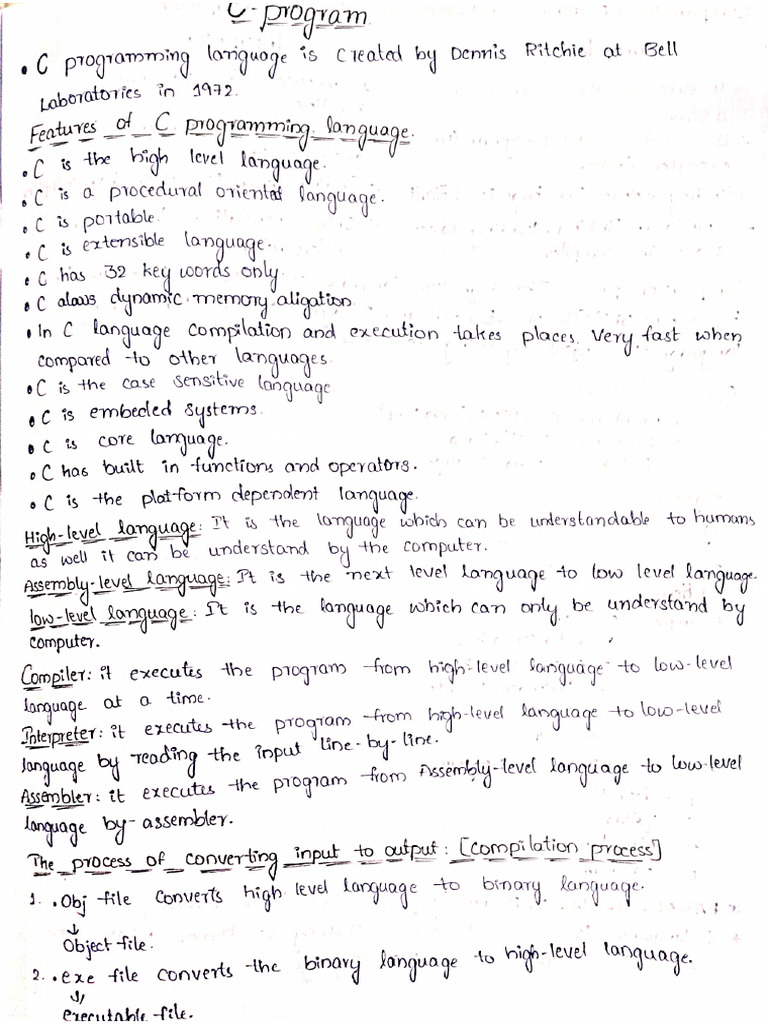 C-program
• C programming language is created by Dennis Ritchie at Bell
Laboratories in 1972.
Features of C programming language.
• C is the high level language.
• C is a procedural orientat language.
• C is portable.
• C is extensible language.
• C has 32 key words only.
• C alows dynamic memory aligation
• In C language compilation and execution takes places very fast when
compared to other languages.
• C is the case sensitive language
• C is embeded systems.
• C is core language.
• C has built in functions and operators.
• C is the platform dependent language.
High-level language: It is the language which can be understandable to humans
as well it can be understand by the computer.
Assembly-level language: It is the next level language to low level language.
low-level language: It is the language which can only be understand by
computer.
Compiler: it executes the program from high-level language to low-level
language at a time.
Interpreter: it executes the program from high-level language to low-level
language by reading the input line-by-line.
Assembler: it executes the program from Assembly-level language to low-level
language by assembler.
The process of converting input to output: [compilation process]
1. .obj file converts high level language to binary language.
↓
Object file.
2. .exe file converts the binary language to high-level language.
↓
Executable file.